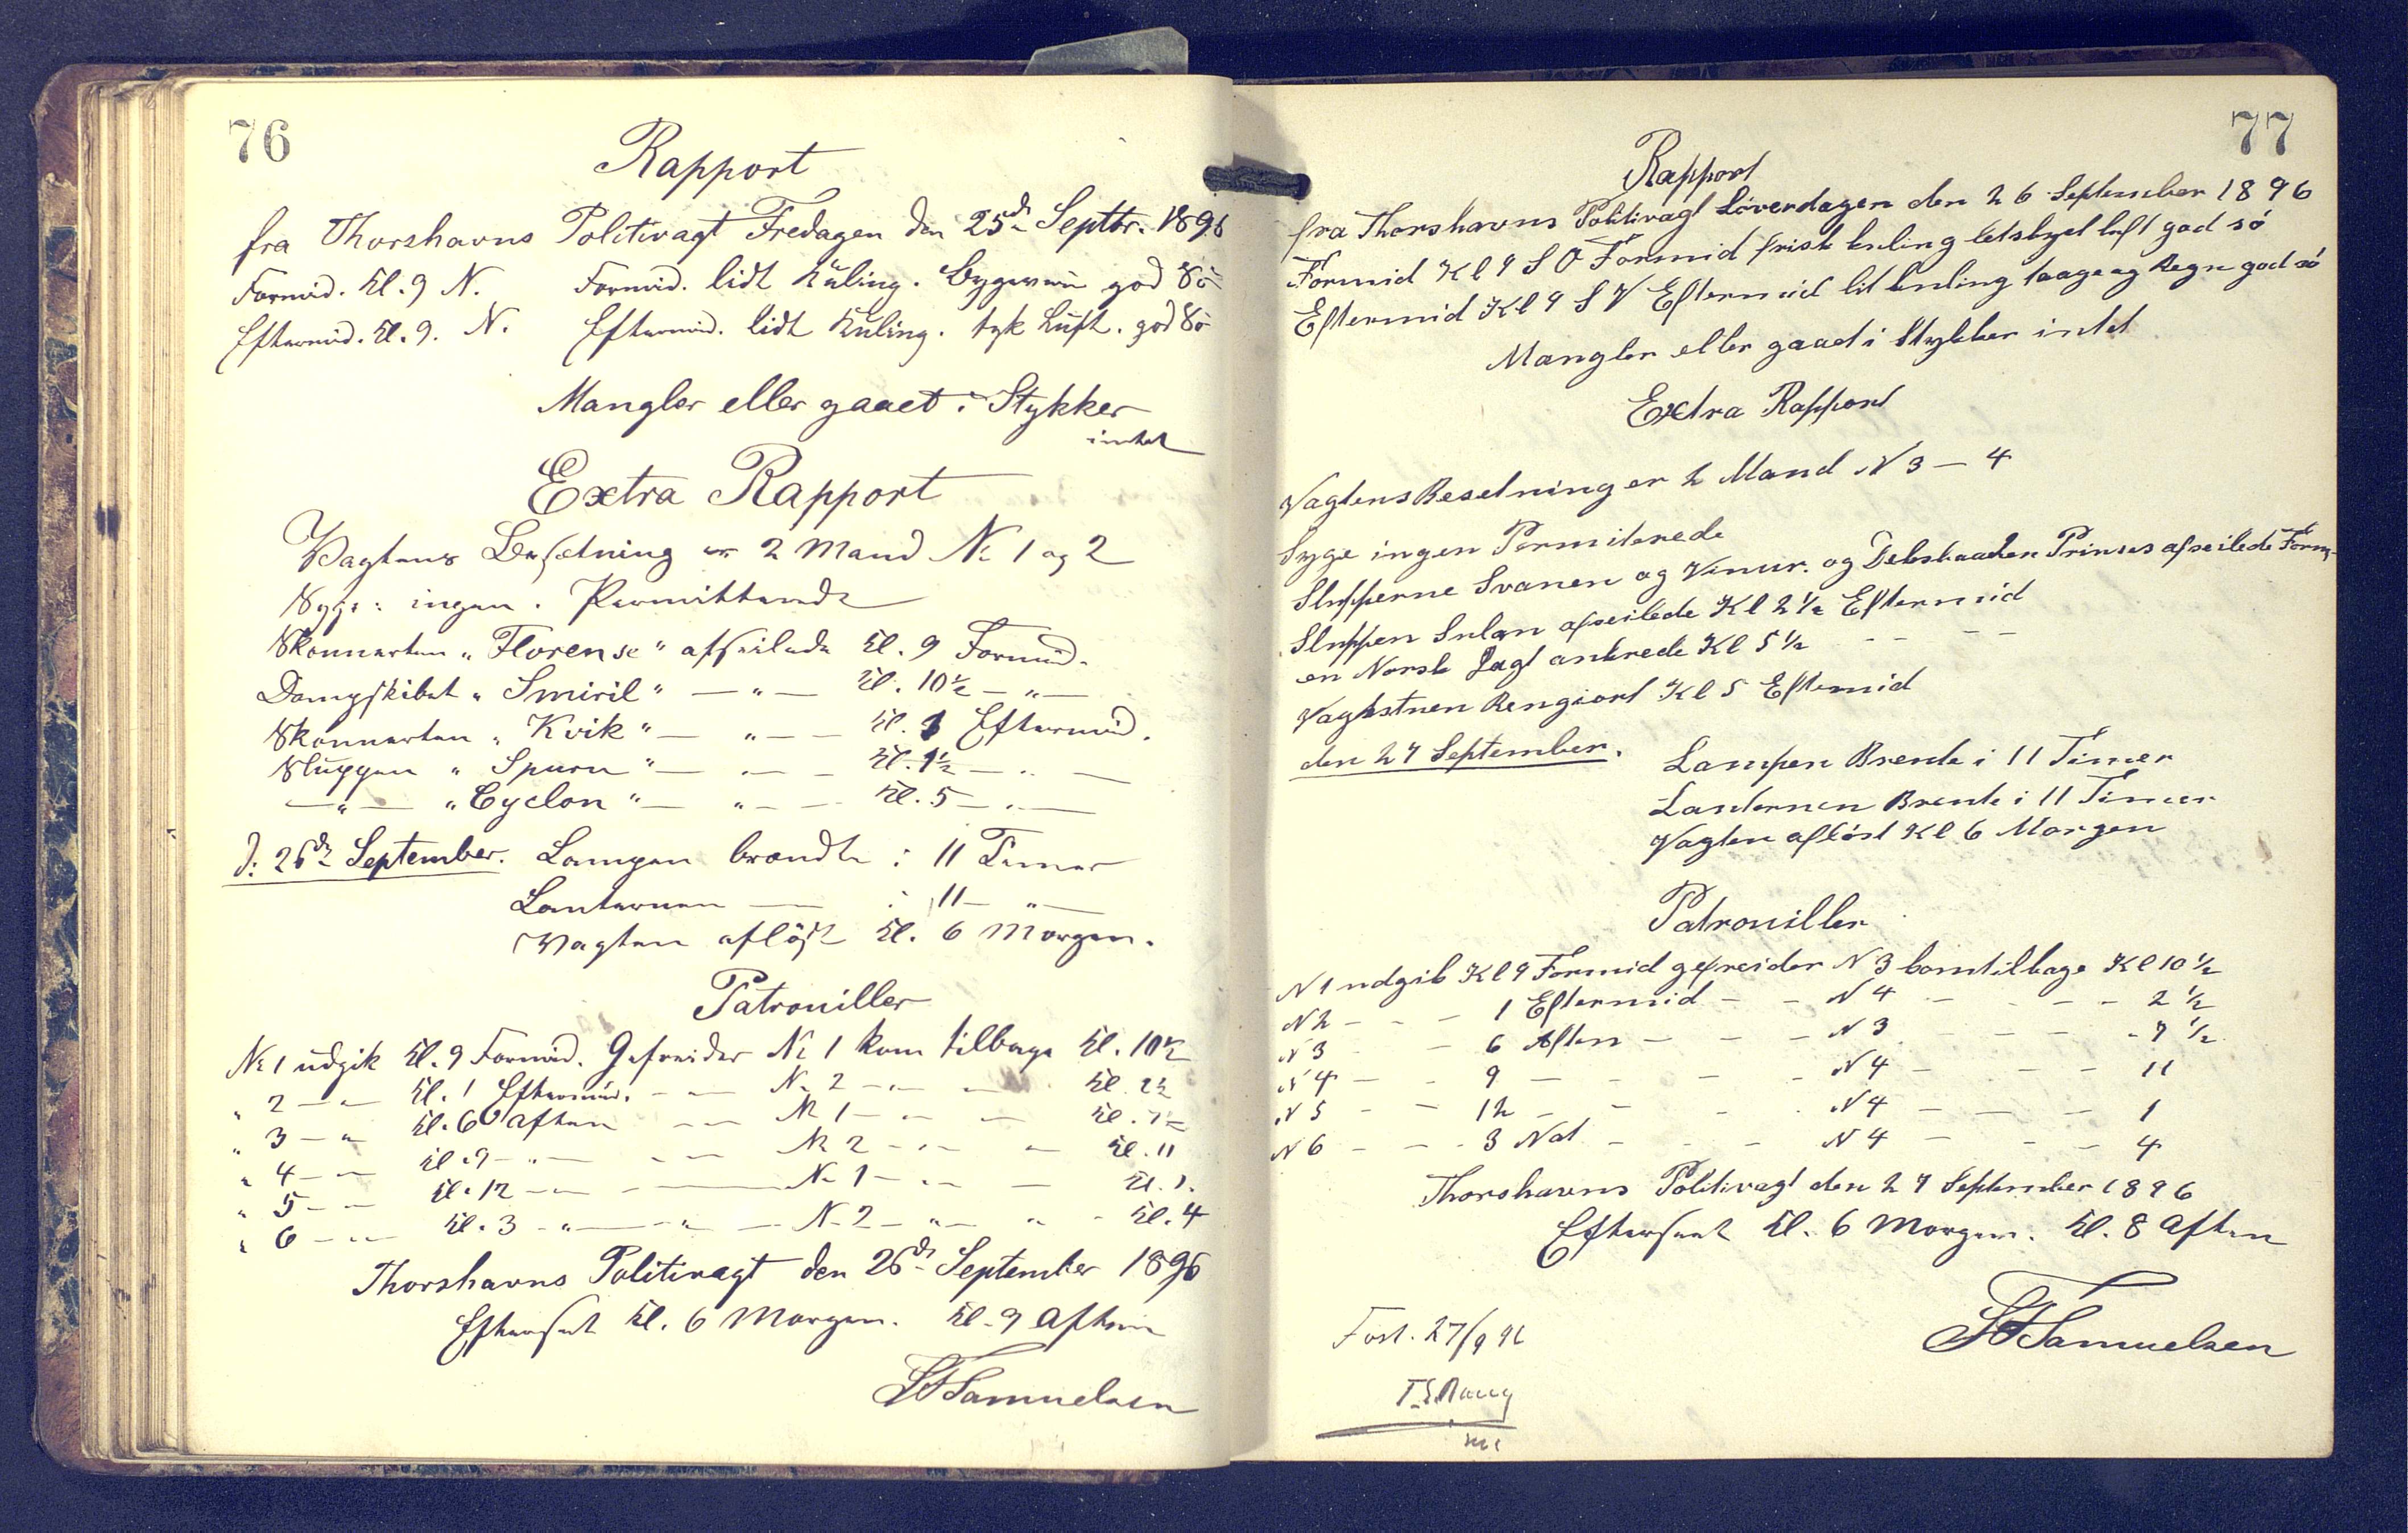 76
Rapport
fra Thorshavns Politivagt Fredagen den 25de Septbr. 1896
Formid. Kl. 9 N. Formid. lidt Kuling. Bygeveir god Sö
Eftermid. Kl. 9. N. Eftermid. lidt Kuling. tyk Luft. god Sö
Mangler eller gaaet i Stykker
intet
Extra Rapport
Vagtens Besetning er 2 Mand No 1 og 2
Syge: ingen. Permitterede
Skonnerten „Florense“ afseilede Kl. 9 Formid.
Dampskibet „Smiril“ — „ — Kl. 10½ — „ —
Skonnerten „Kvik“ — „ — — Kl. 1 Eftermid.
Sluppen „Spurn“ — „ — — Kl. 1½ — „ —
— „ — „Cyclon“ — „ — — Kl. 5 — „ —
d: 26de September. Lampen brændte i 11 Timer
Lanternen — i 11 — „ —
Vagten aflöst Kl. 6 Morgen.
Patrouiller
No 1 udgik Kl. 9 Formid. Gefreider No 1 kom tilbage Kl. 10½
„ 2 — „ — Kl. 1 Eftermid. — „ — No 2 — „ — „ — Kl. 2½
„ 3 — „ Kl. 6 Aften — „ — No 1 — „ — „ — Kl. 7½
„ 4 — „ — Kl. 9 — „ — — „ — No 2 — „ — „ — Kl. 11
„ 5 — „ — Kl. 12 — „ — — No 1 — „ — — Kl. 1.
„ 6 — „ — Kl. 3 — „ — „ — No 2 — „ — „ - Kl. 4
Thorshavns Politivagt den 26de September 1896
Efterseet Kl. 6 Morgen. Kl. 9 Aften
SFSamuelsen
77
Rapport
fra Thorshavns Politivagt Löverdagen den 26 September 1896
Formid Kl 9 S O Formid frisk kuling letskyet luft god sö
Eftermid Kl 9 S V Eftermid lit kuling taage og Regn god sö
Mangler eller gaaet i Stykker intet
Extra Rapport
Vagtens Besetning er 2 Mand N 3 — 4
Syge ingen Permiterede
Slupperne Svanen og og Deksbaaden Prinses afseilede Form
Sluppen Sulan afseilede Kl 2½ Eftermid
en Norsk Jagt ankrede Kl 5½ - - - -
Vagtstuen Rengiort Kl 5 Eftermid
den 27 September. Lampen Brente i 11 Timer
Lanternen Brente i 11 Timer
Vagten aflöst Kl 6 Morgen
Patrouiller
N 1 udgik Kl 9 Formid gefreider N 3 kom tilbage Kl 10½
N 2 - - - 1 Eftermid - - N 4 - - - - 2½
N 3 - - 6 Aften - - - N 3 - - - - 7½
N 4 - - 9 - - - - N 4 - - - 11
N 5 - - 12 - - - - N 4 - - - 1
N 6 - - - 3 Nat - - - N 4 - - - 4
Thorshavns Politivagt den 27 September 1896
Efterseet Kl. 6 Morgen. Kl. 8 Aften
SFSamuelsen
27/9 96